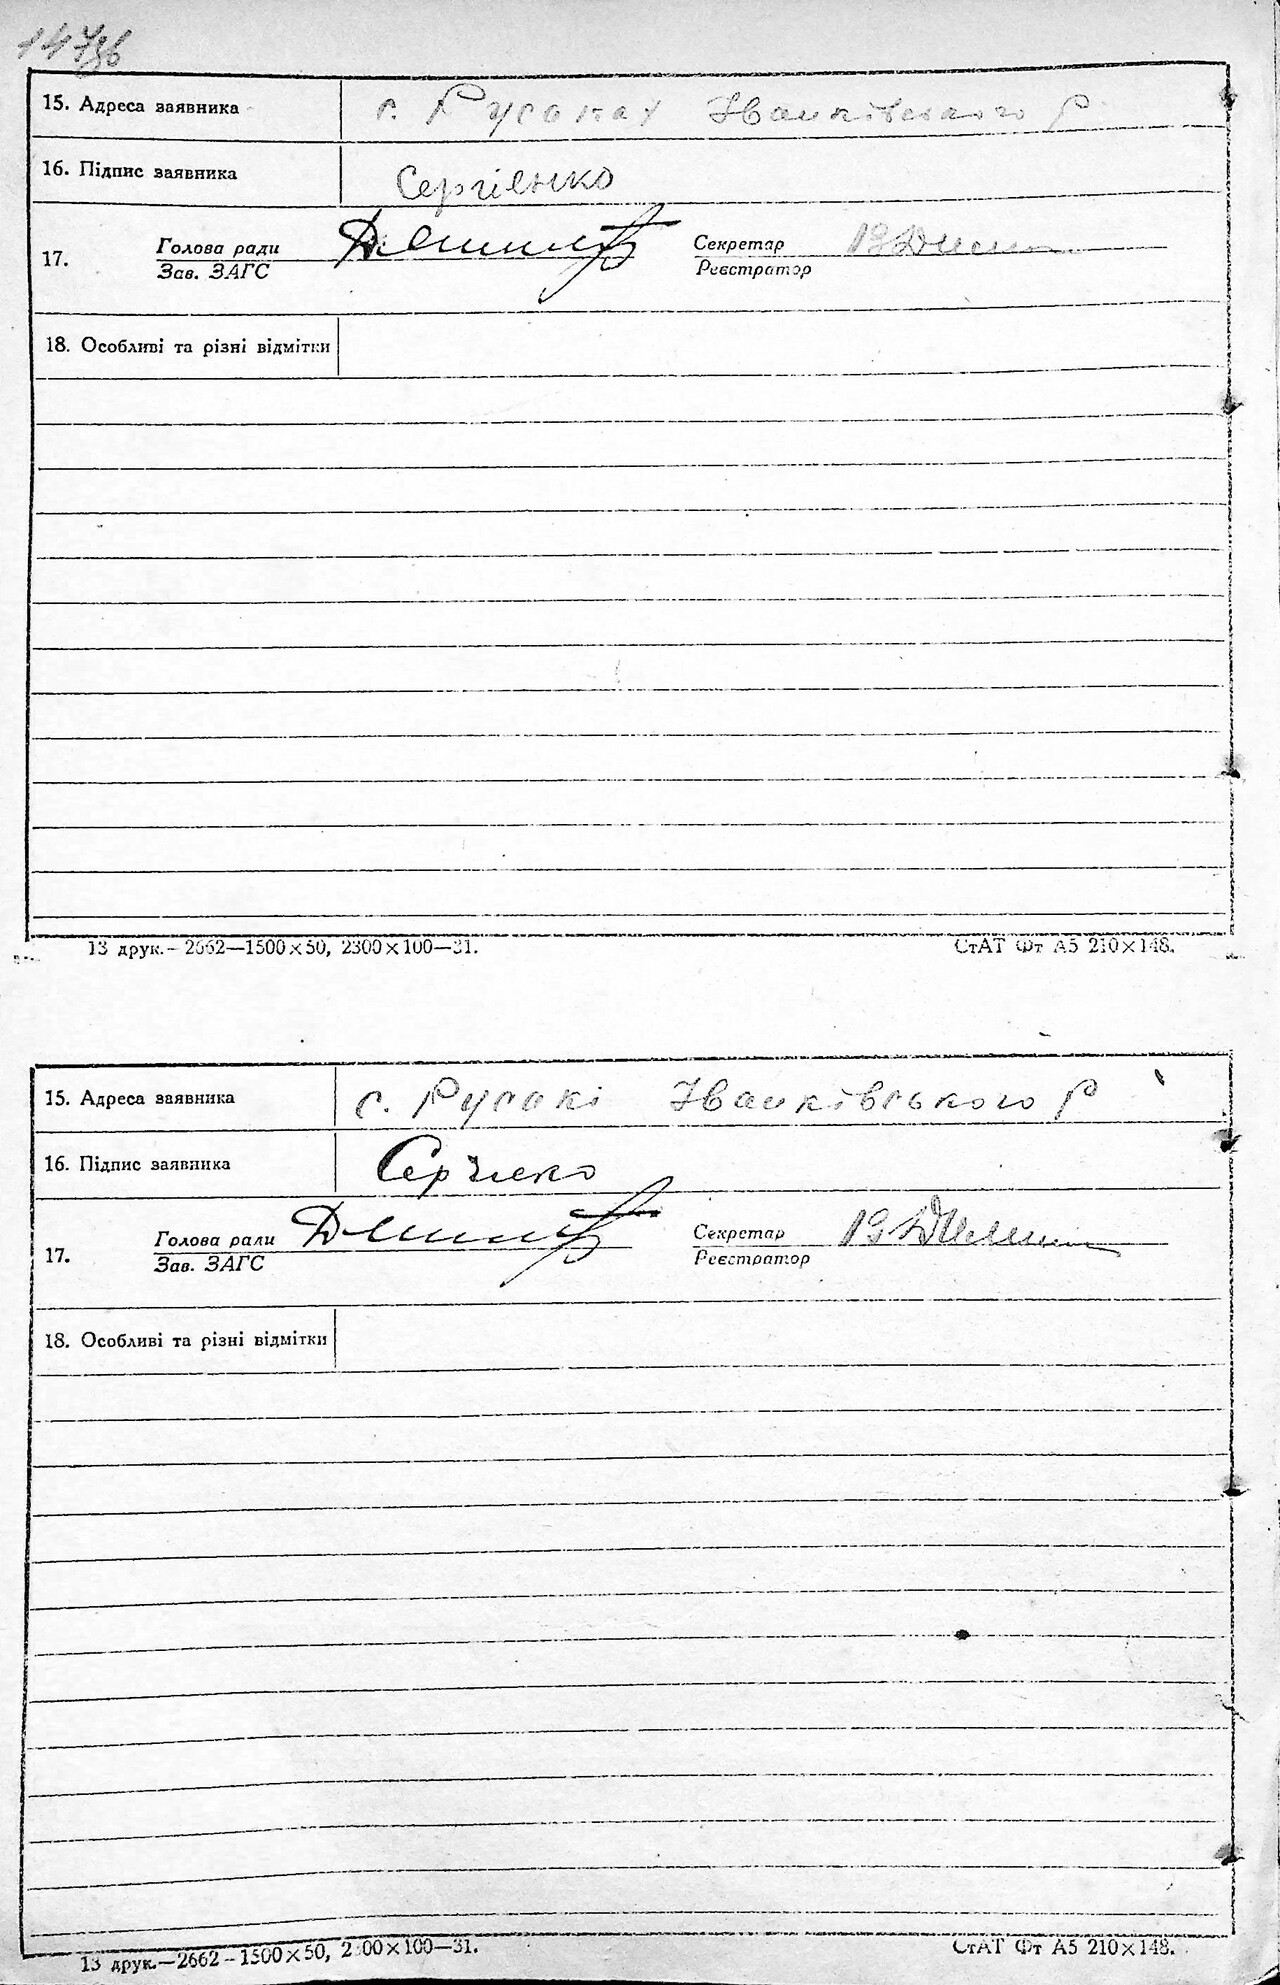 147зв
15. Адреса заявника с. Русаках Іванківського Р
16. Підпис заявника Сергієнко
Голова ради Секретар
17.
Зав. ЗАГС Реєстратор
18. Особливі та різні відмітки
13 друк.—2662—1500×50, 2300×100—31. СтАТ Фт А5 210×148.
15. Адреса заявника с. Русакі Іванківського Р
16. Підпис заявника
Голова ради Секретар
17.
Зав. ЗАГС Реєстратор
18. Особливі та різні відмітки
13 друк.—2662—1500×50, 2300×100—31. СтАТ Фт А5 210×148.